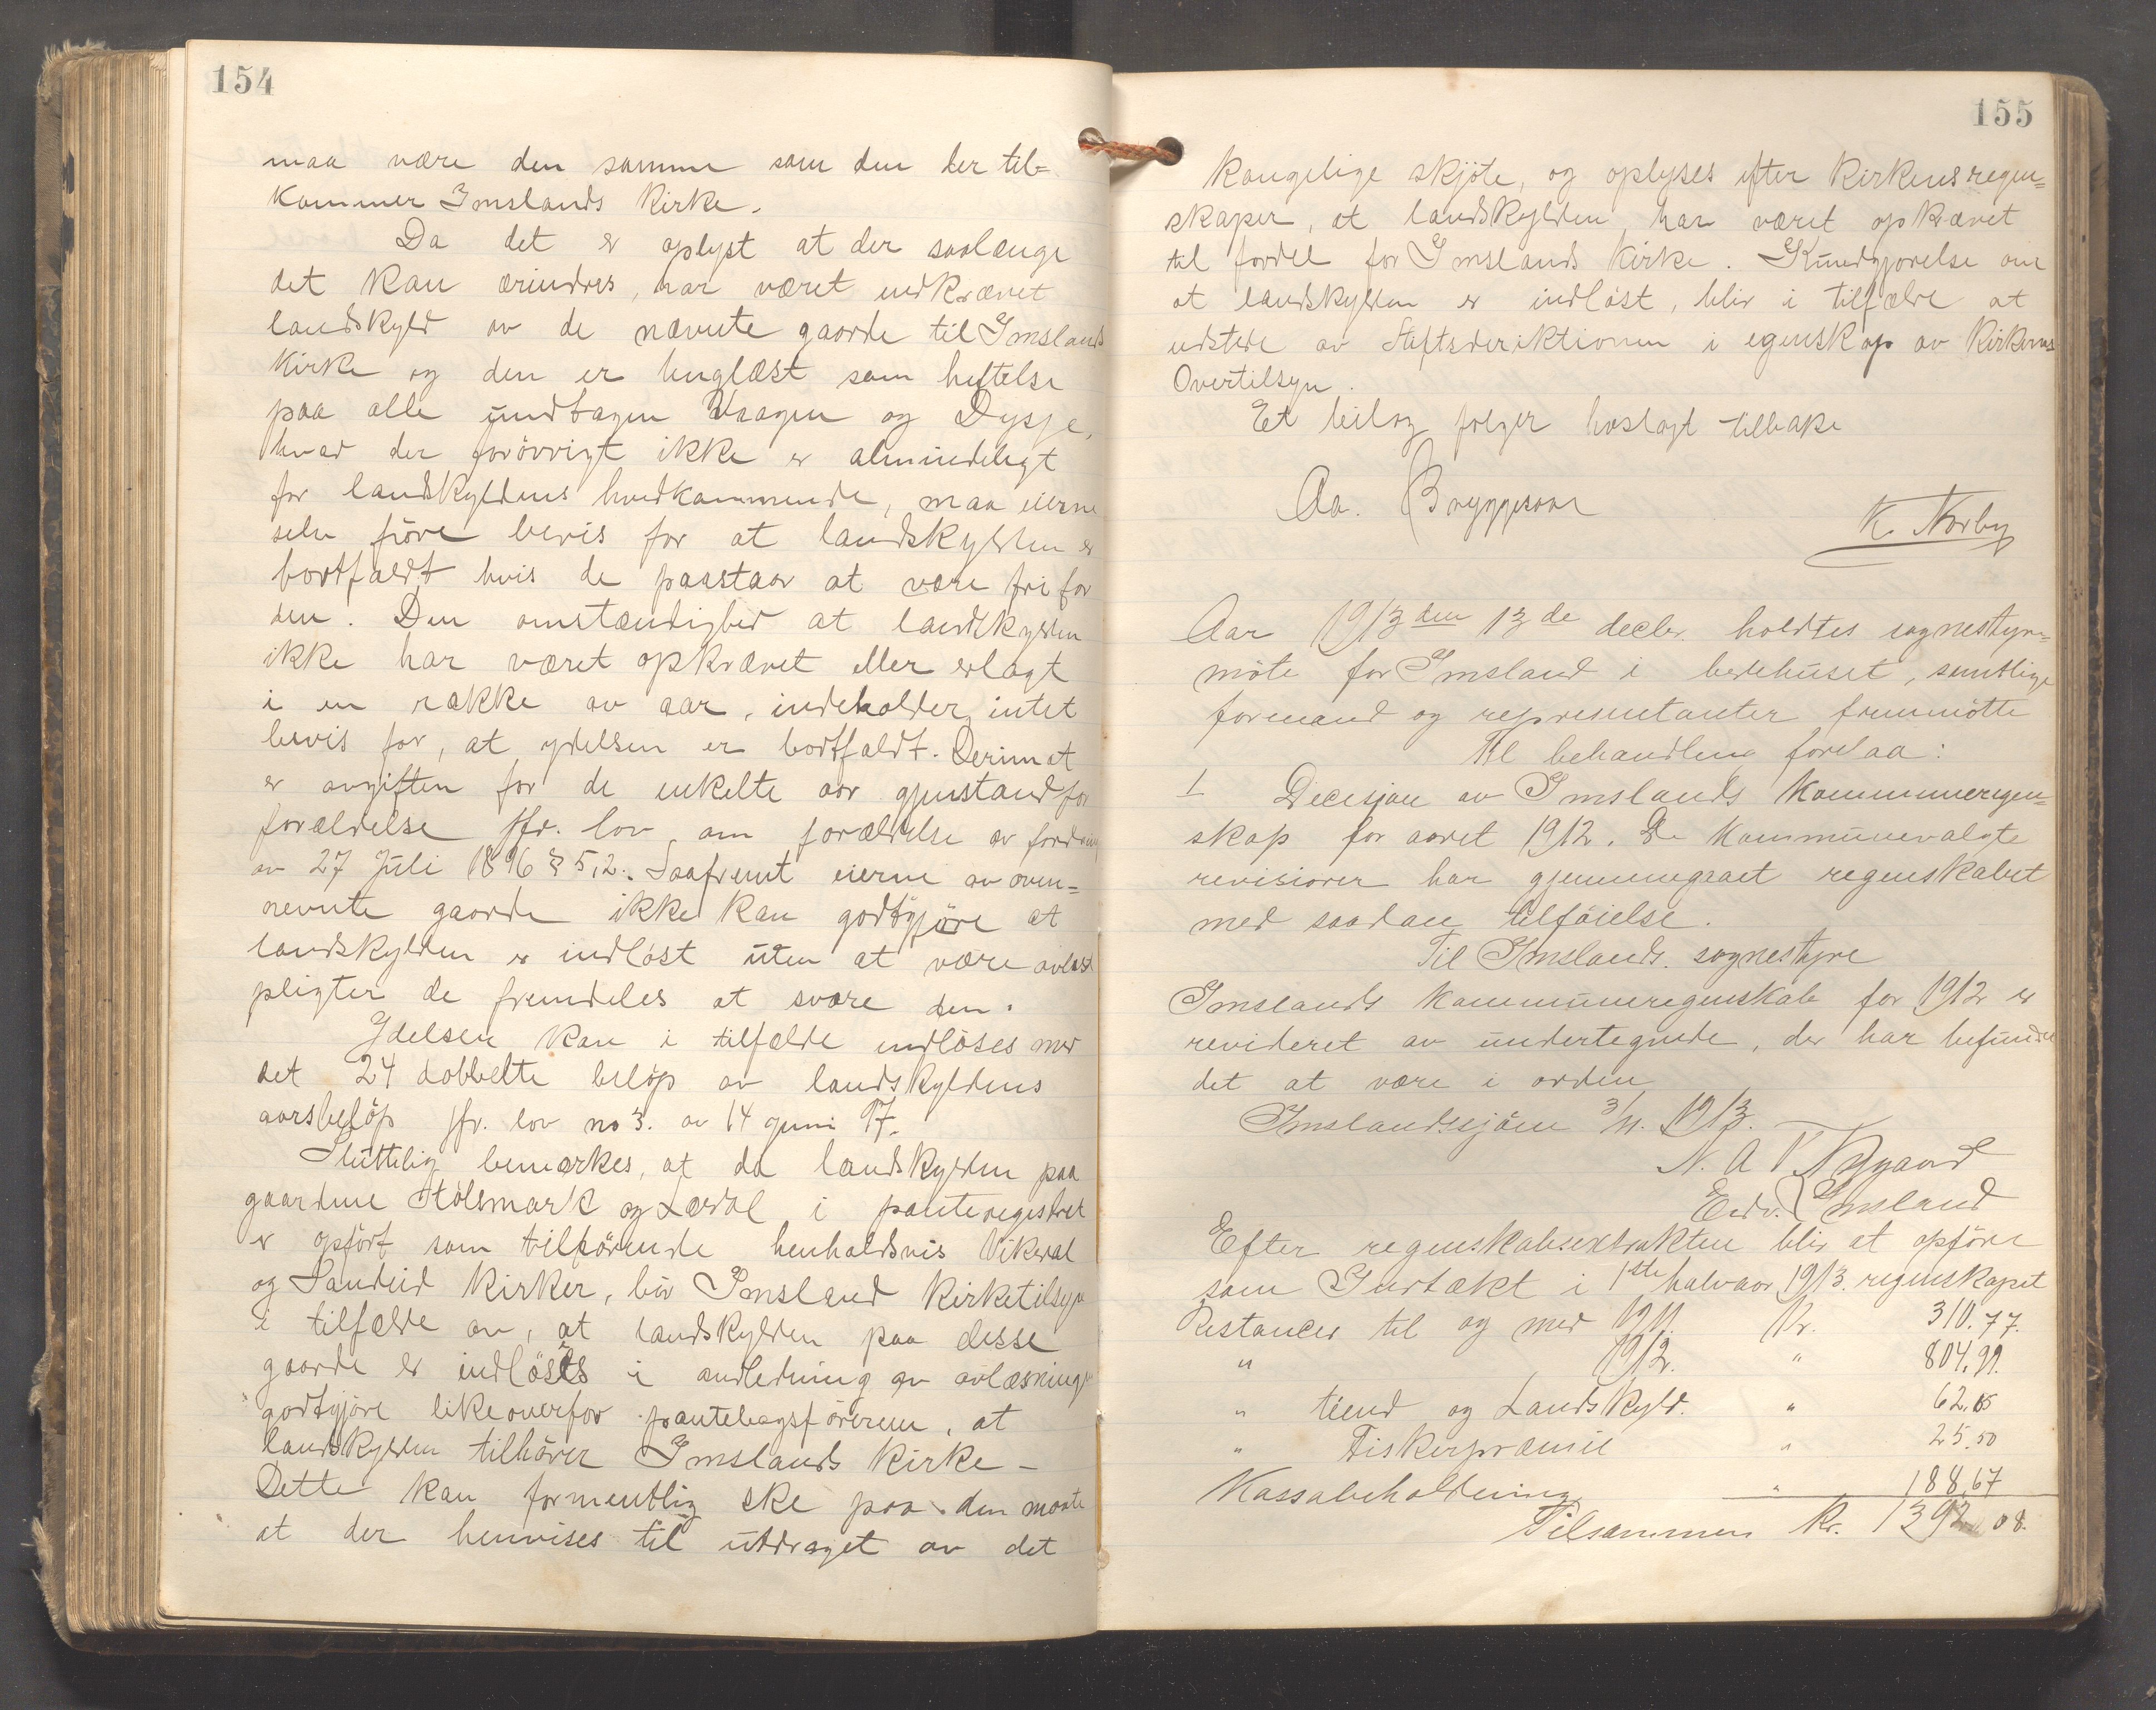 154
maa være den samme som den her til=
kommer Imslands Kirke.
Da det er oplyst at der saalænge
det kan ærindres, har været indkrævet
landskyld av de nævnte gaarde til Imslands
Kirke og den er tinglæst som heftelse
paa alle undtagen Vraagen og Dysje,
hvad der forövrigt ikke er almindeligt
for landskyldens hvedkommende, maa eierne
selv före bevis for at landskylden er
bortfaldt hvis de paastaar at være fri for
den. Den omstændighed at landskylden
ikke har været opkrævet eller erlagt
i en række av aar, indeholder intet
bevis for, at ydelsen er bortfaldt. Derimot
er avgiften for de enkelte aar gjenstand for
forældelse jfr. lov om forældelse av fordring
av 27 Juli 1896 § 5,2. Saafremt eierne av oven=
nevnte gaarde ikke kan godtgjöre at
landskylden er indlöst uten at være avlæst
pligter de fremdeles at svare den.
Ydelsen kan i tilfælde indlöses med
det 24 dobbelte belöp av landskyldens
aarsbelöp jfr. lov no 3. av 14 juni 97.
Sluttelig bemærkes, at da landskylden paa
gaardene Stölsmark og Lærdal i panteregistret
er opfört som tilhörende henholdsvis Vikedal
og Sandeid Kirker, bör Imsland Kirketilsyn
i tilfælde av, at landskylden paa disse
gaarde er indlöses i andledning av avlæsning
godtgjöre likeoverfor pantebogsföreren, at
landskylden tilhörer Imslands Kirke –
Dette kan formentlig ske paa den maate
at der henvises til utdraget av det
155
kongelige skjöte, og oplyses efter Kirkens regn=
skaper, at landskylden har været opkrævet
til fordel for Imslands Kirke. Kundgjorelse om
at landskylden er indlöst, blir i tilfælde at
udstede av Stiftsdirektionen i egenskap av Kirkens
Overtilsyn.
Et beilag følger hoslagt tilbake
Aa. Bryggesaa
K. Norby
Aar 1913 den 13de decbr. holdtes sognestyre=
möte for Imsland i bedehuset, samtlige
formænd og representanter fremmötte
Til behandling forelaa:
1 Decisjon av Imslands Kommuneregn=
skap for aaret 1912. De Kommunevalgte
revisiorer har gjennemgaaet regnskabet
med saadan tilföielse.
Til Imslands sognestyre
Imslands Kommuneregnskab for 1912 er
revideret av undertegnede, der har befundet
det at være i orden
Imslandssjöen 3/11. 1913.
N. A. Nygaard
Edv. Imsland
Efter regnskabsextrakten blir at opföre
som Indtækt i 1ste halvaar 1913. regnskapet
Restancer til og med 1911 Kr. 310.77.
" 1912. " 804.99.
" tiend og Landskyld. " 62.15
" Fiskerpræmie " 25.50
Kassabeholdning " 188,67
Tilsammen Kr. 1392 08.